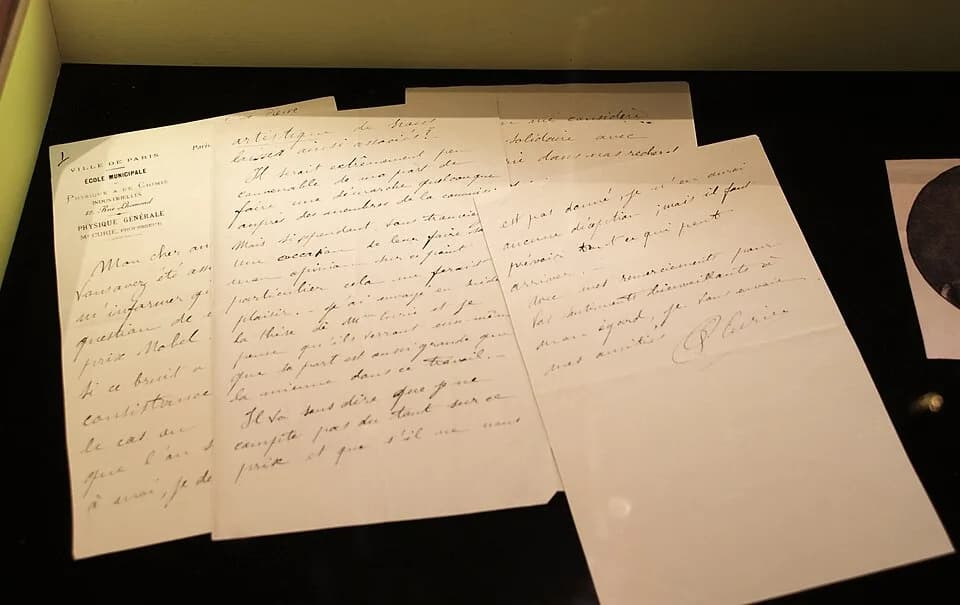 VILLE DE PARIS
ÉCOLE MUNICIPALE
DE
PHYSIQUE & DE CHIMIE
INDUSTRIELLES
42, Rue Lhomond
PHYSIQUE GÉNÉRALE
Mr CURIE, PROFESSEUR
Paris
Mon cher am
Vous avez été
m'informer qu
question de
prix Nobel.
Si ce bruit a
consistance
le cas où
que l'on
à avoir, je dé
artistique de
ainsi associés?
Il serait extrêmement peu
convenable de ma part de
faire une démarche quelconque
auprès des membres de la
Mais si cependant sans
une occasion de leur faire
mon opinion sur ce point
particulier cela me ferait
plaisir. J'ai envoyé en Suède
la thèse de Mme Curie et je
pense qu'ils verront eux même
que sa part est aussi grande que
la mienne dans ce travail.
Il va sans dire que je ne
compte pas du tout sur ce
prix et que s'il ne nous
me considérer
solidaire avec
dans mes recherch
est pas donné je n'en aurai
aucune déception, mais il faut
prévoir tout ce qui peut
arriver.
Avec mes remerciements pour
vos sentiments bienveillants à
mon égard, je vous envoie
mes amitiés
P. Curie